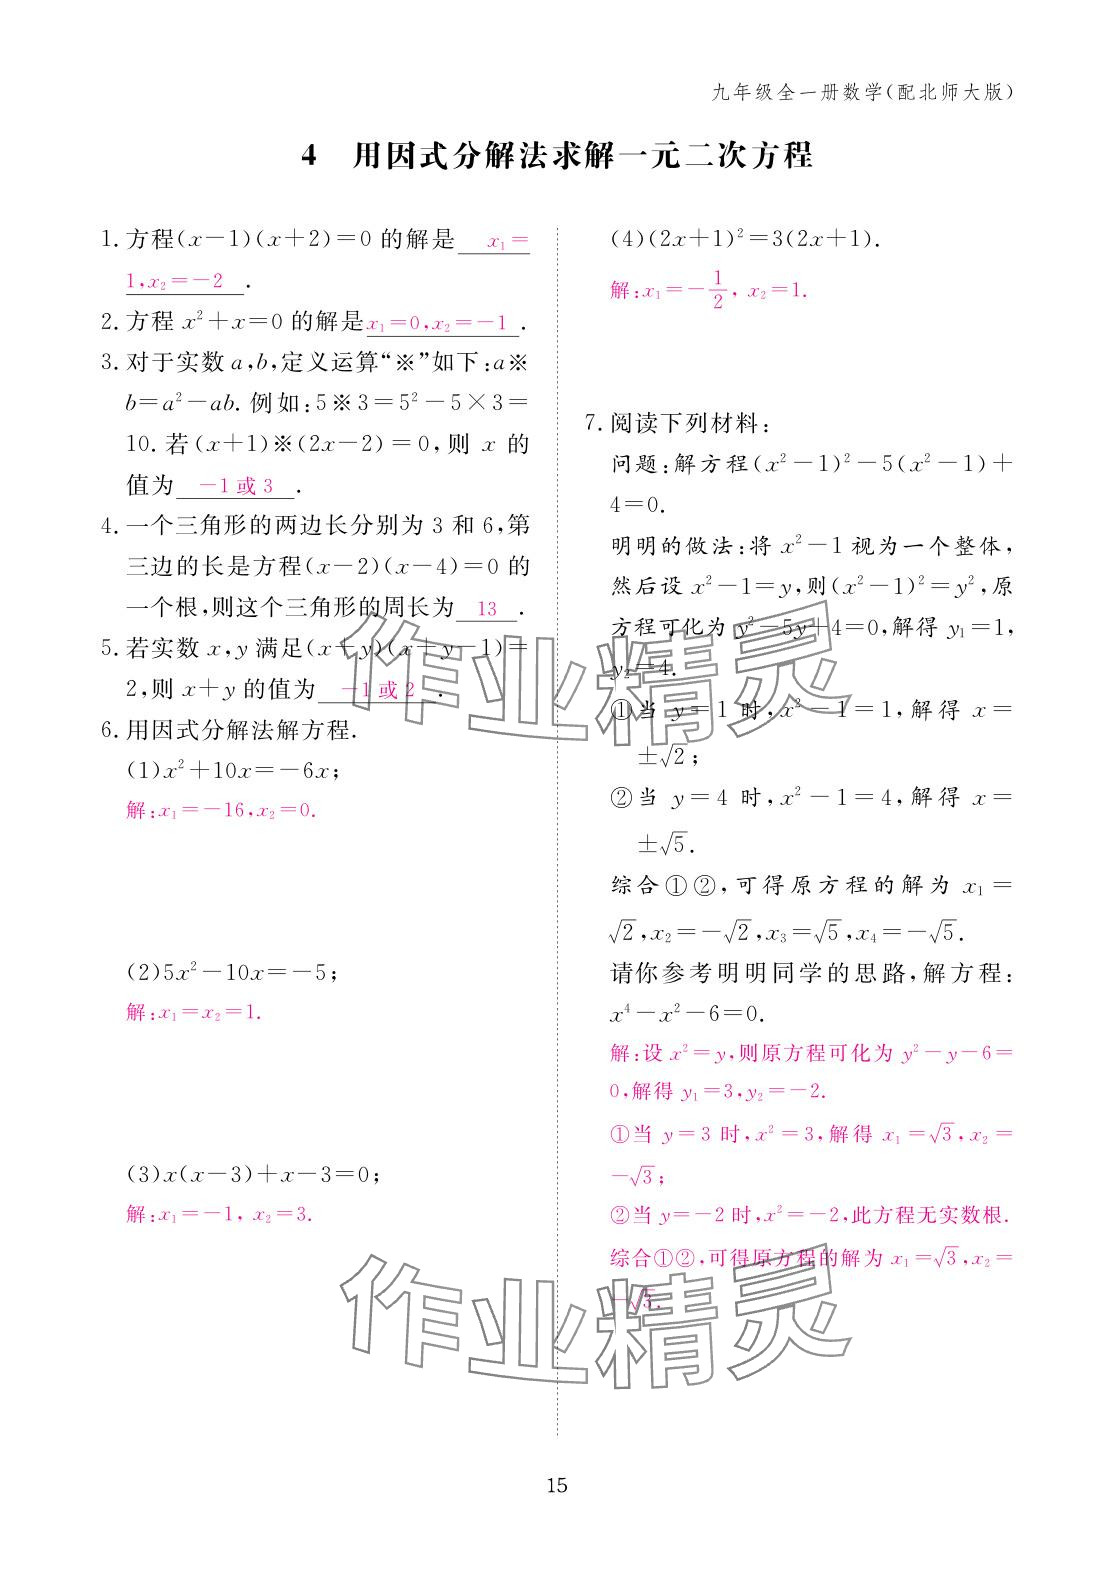 九年级全一册数学(配北师大版)
4 用因式分解法求解一元二次方程
1. 方程(x－1)(x＋2)＝0 的解是 x₁＝
1,x₂＝－2 .
2. 方程 x²＋x＝0 的解是 x₁＝0,x₂＝－1 .
3. 对于实数 a,b,定义运算“※”如下:a※
b＝a²－ab. 例如:5※3＝5²－5×3＝
10. 若(x＋1)※(2x－2)＝0,则 x 的
值为 －1 或 3 .
4. 一个三角形的两边长分别为 3 和 6,第
三边的长是方程(x－2)(x－4)＝0 的
一个根,则这个三角形的周长为 13 .
5. 若实数 x,y 满足(x＋y)(x＋y－1)＝
2,则 x＋y 的值为 －1 或 2 .
6. 用因式分解法解方程.
(1)x²＋10x＝－6x;
解:x₁＝－16,x₂＝0.
(2)5x²－10x＝－5;
解:x₁＝x₂＝1.
(3)x(x－3)＋x－3＝0;
解:x₁＝－1, x₂＝3.
(4)(2x＋1)²＝3(2x＋1).
解:x₁＝－1/2, x₂＝1.
7. 阅读下列材料:
问题:解方程(x²－1)²－5(x²－1)＋
4＝0.
明明的做法:将 x²－1 视为一个整体,
然后设 x²－1＝y,则(x²－1)²＝y²,原
方程可化为 y²－5y＋4＝0,解得 y₁＝1,
y₂＝4.
①当 y＝1 时,x²－1＝1,解得 x＝
±√2;
②当 y＝4 时,x²－1＝4,解得 x＝
±√5.
综合①②,可得原方程的解为 x₁＝
√2,x₂＝－√2,x₃＝√5,x₄＝－√5.
请你参考明明同学的思路,解方程:
x⁴－x²－6＝0.
解:设 x²＝y,则原方程可化为 y²－y－6＝
0,解得 y₁＝3,y₂＝－2.
①当 y＝3 时,x²＝3,解得 x₁＝√3,x₂＝
－√3;
②当 y＝－2 时,x²＝－2,此方程无实数根.
综合①②,可得原方程的解为 x₁＝√3,x₂＝
－√3.
作业精灵
作业精灵
15